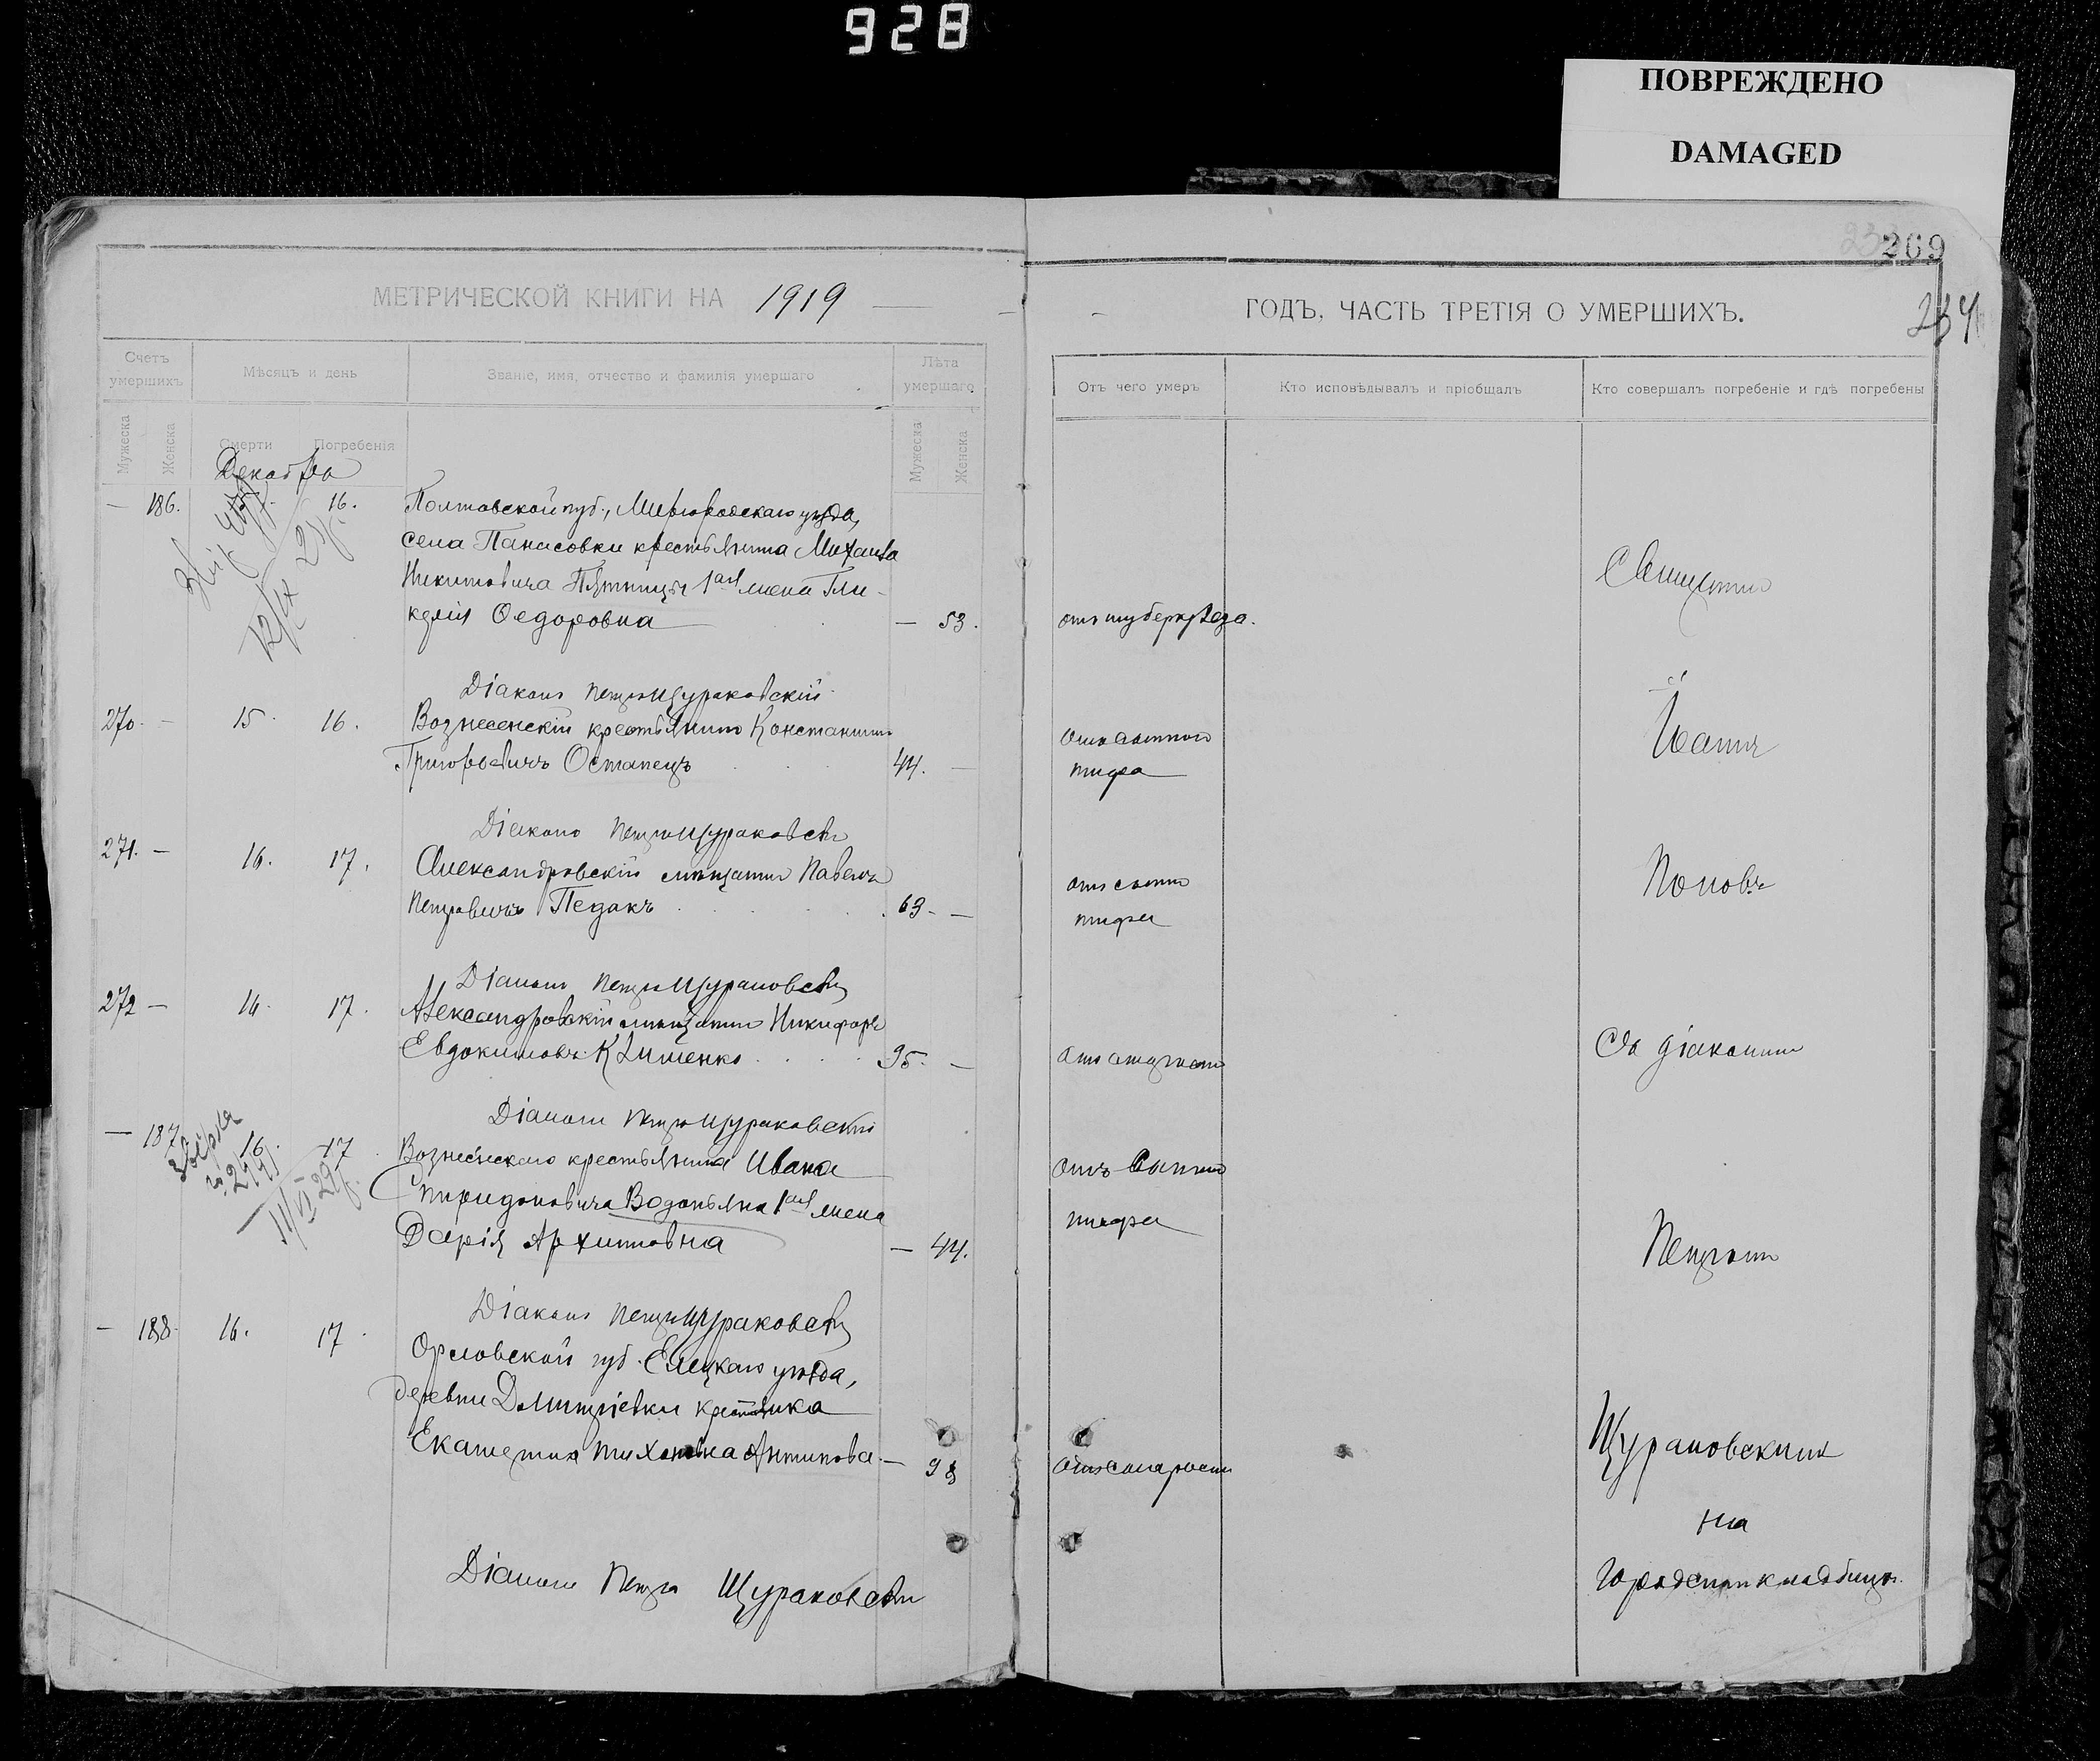 928
ПОВРЕЖДЕНО
DAMAGED
269
234
МЕТРИЧЕСКОЙ КНИГИ НА 1919
ГОДЪ, ЧАСТЬ ТРЕТІЯ О УМЕРШИХЪ.
Счетъ умершихъ
Мѣсяцъ и день
Званіе, имя, отчество и фамилія умершаго
Лѣта умершаго
Отъ чего умеръ
Кто исповѣдывалъ и пріобщалъ
Кто совершалъ погребеніе и гдѣ погребены
Мужеска
Женска
Смерти
Погребенія
Мужеска
Женска
Декабрь
— 186. 16. Полтавской губ., Миргородскаго уѣзда,
села Панасовки крестьянина Михаила
Никитовича Пятницы 1ая жена Гли-
керія Ѳедоровна — 53. отъ туберкулеза.
Священникъ
Діаконъ Петръ Щураковскій
270. — 15. 16. Вознесенскій крестьянинъ Константинъ
Григорьевичъ Остапецъ 44. — отъ сыпного
тифа
Іоаннъ
Діаконъ Петръ Щураковскій
271. — 16. 17. Александровскій мѣщанинъ Павелъ
Петровичъ Педакъ 63. — отъ сыпн
тифа
Поповъ
Діаконъ Петръ Щураковскій
272 — 16. 17. Александровскій мѣщанинъ Никифоръ
Евдокимовъ Клименко 95. — отъ старости
Съ діакономъ
Діаконъ Петръ Щураковскій
— 187 16. 17 Вознесенскаго крестьянина Ивана
Спиридоновича Водопьяна 1ая жена
Дарія Архиповна — 44.
отъ сыпно
тифа
Петромъ
Діаконъ Петръ Щураковскій
— 188. 16. 17 Орловской губ. Елецкаго уѣзда,
деревни Дмитріевки крестьянка
Екатерина Тихоновна Антипова. — 98 отъ старости
Щураковскимъ
на
городскомъ кладбищѣ.
Діаконъ Петръ Щураковскій